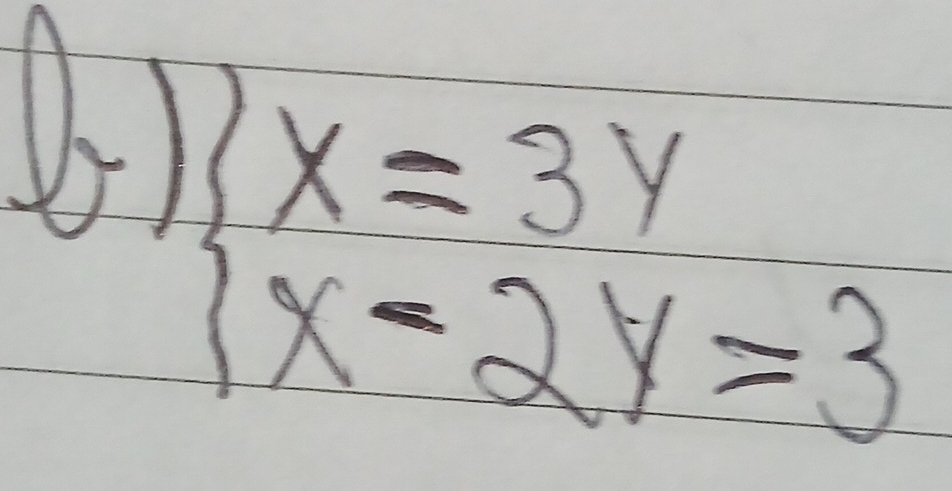 b) { X = 3Y
X - 2Y = 3